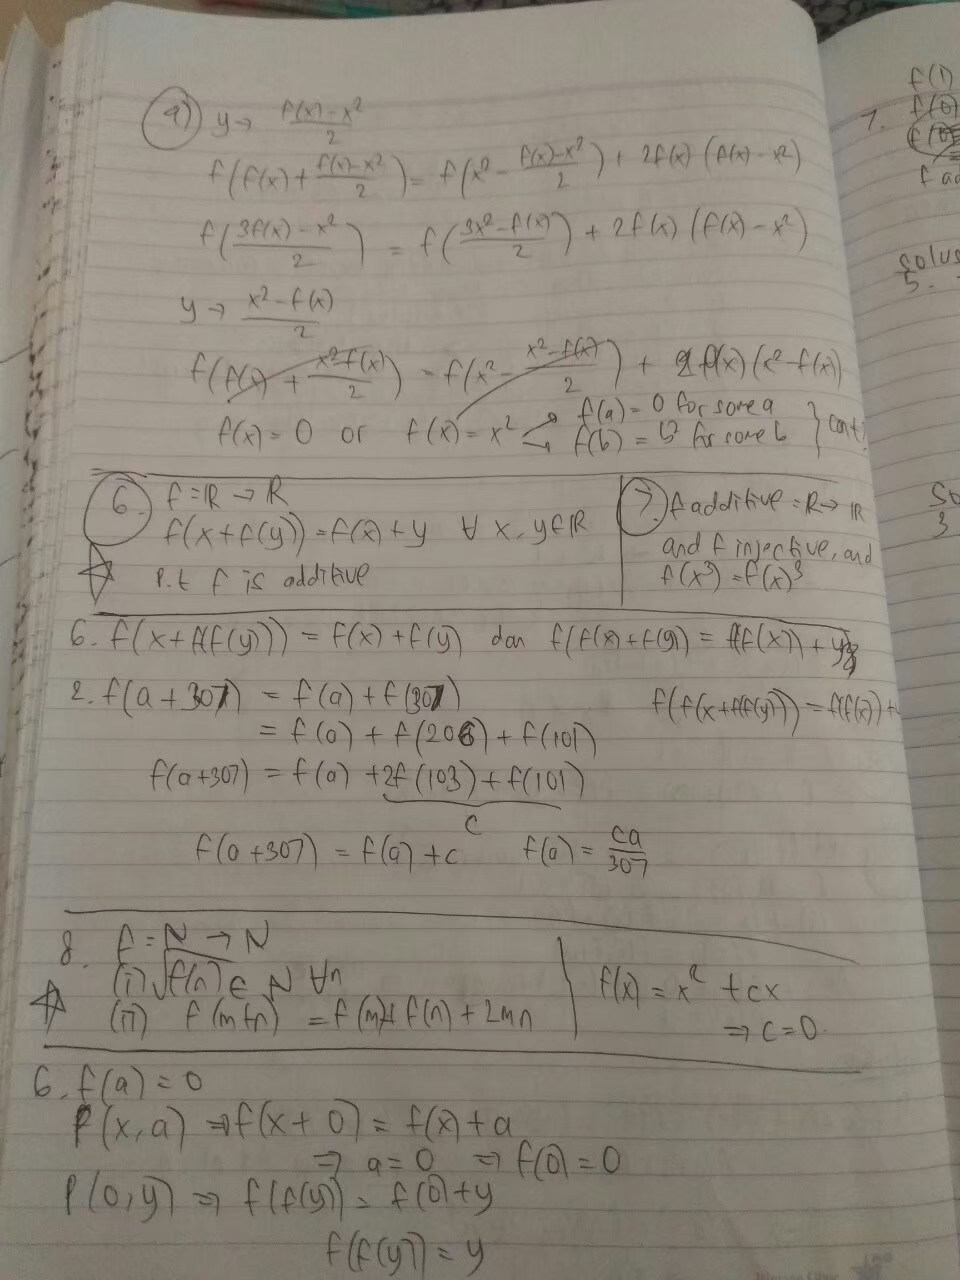 9) y → (f(x) - x²)/2
f(f(x) + (f(x) - x²)/2) = f(x² - (f(x) - x²)/2) + 2f(x) (f(x) - x²)
f((3f(x) - x²)/2) = f((3x² - f(x))/2) + 2f(x) (f(x) - x²)
y → (x² - f(x))/2
f(f(x) + (x² - f(x))/2) = f(x² - (x² - f(x))/2) + 2f(x) (x² - f(x))
f(x) = 0 or f(x) = x²
f(a) = 0 for some a
f(b) = b² for some b
6. f = R → R
f(x + f(y)) = f(x) + y ∀ x, y ∈ R
p.t f is additive
7. f additive = R → R
and f injective, and
f(x³) = f(x)³
6. f(x + f(f(y))) = f(x) + f(y) dan f(f(x) + f(y)) = f(f(x)) + y
f(f(x + f(f(y))) = f(f(x)) +
2. f(a + 307) = f(a) + f(307)
= f(a) + f(206) + f(101)
f(a + 307) = f(a) + 2f(103) + f(101)
c
f(a + 307) = f(a) + c f(a) = ca/307
8. f = N → N
(i) √f(n) ∈ N ∀n
(ii) f(m+n) = f(m) + f(n) + 2mn
f(x) = x² + cx
⇒ c = 0
6. f(a) = 0
P(x, a) ⇒ f(x + 0) = f(x) + a
⇒ a = 0 ⇒ f(0) = 0
P(0, y) ⇒ f(f(y)) = f(0) + y
f(f(y)) = y
f(1)
7. f(0)
f(0)
f ad
solus
5.
So
3